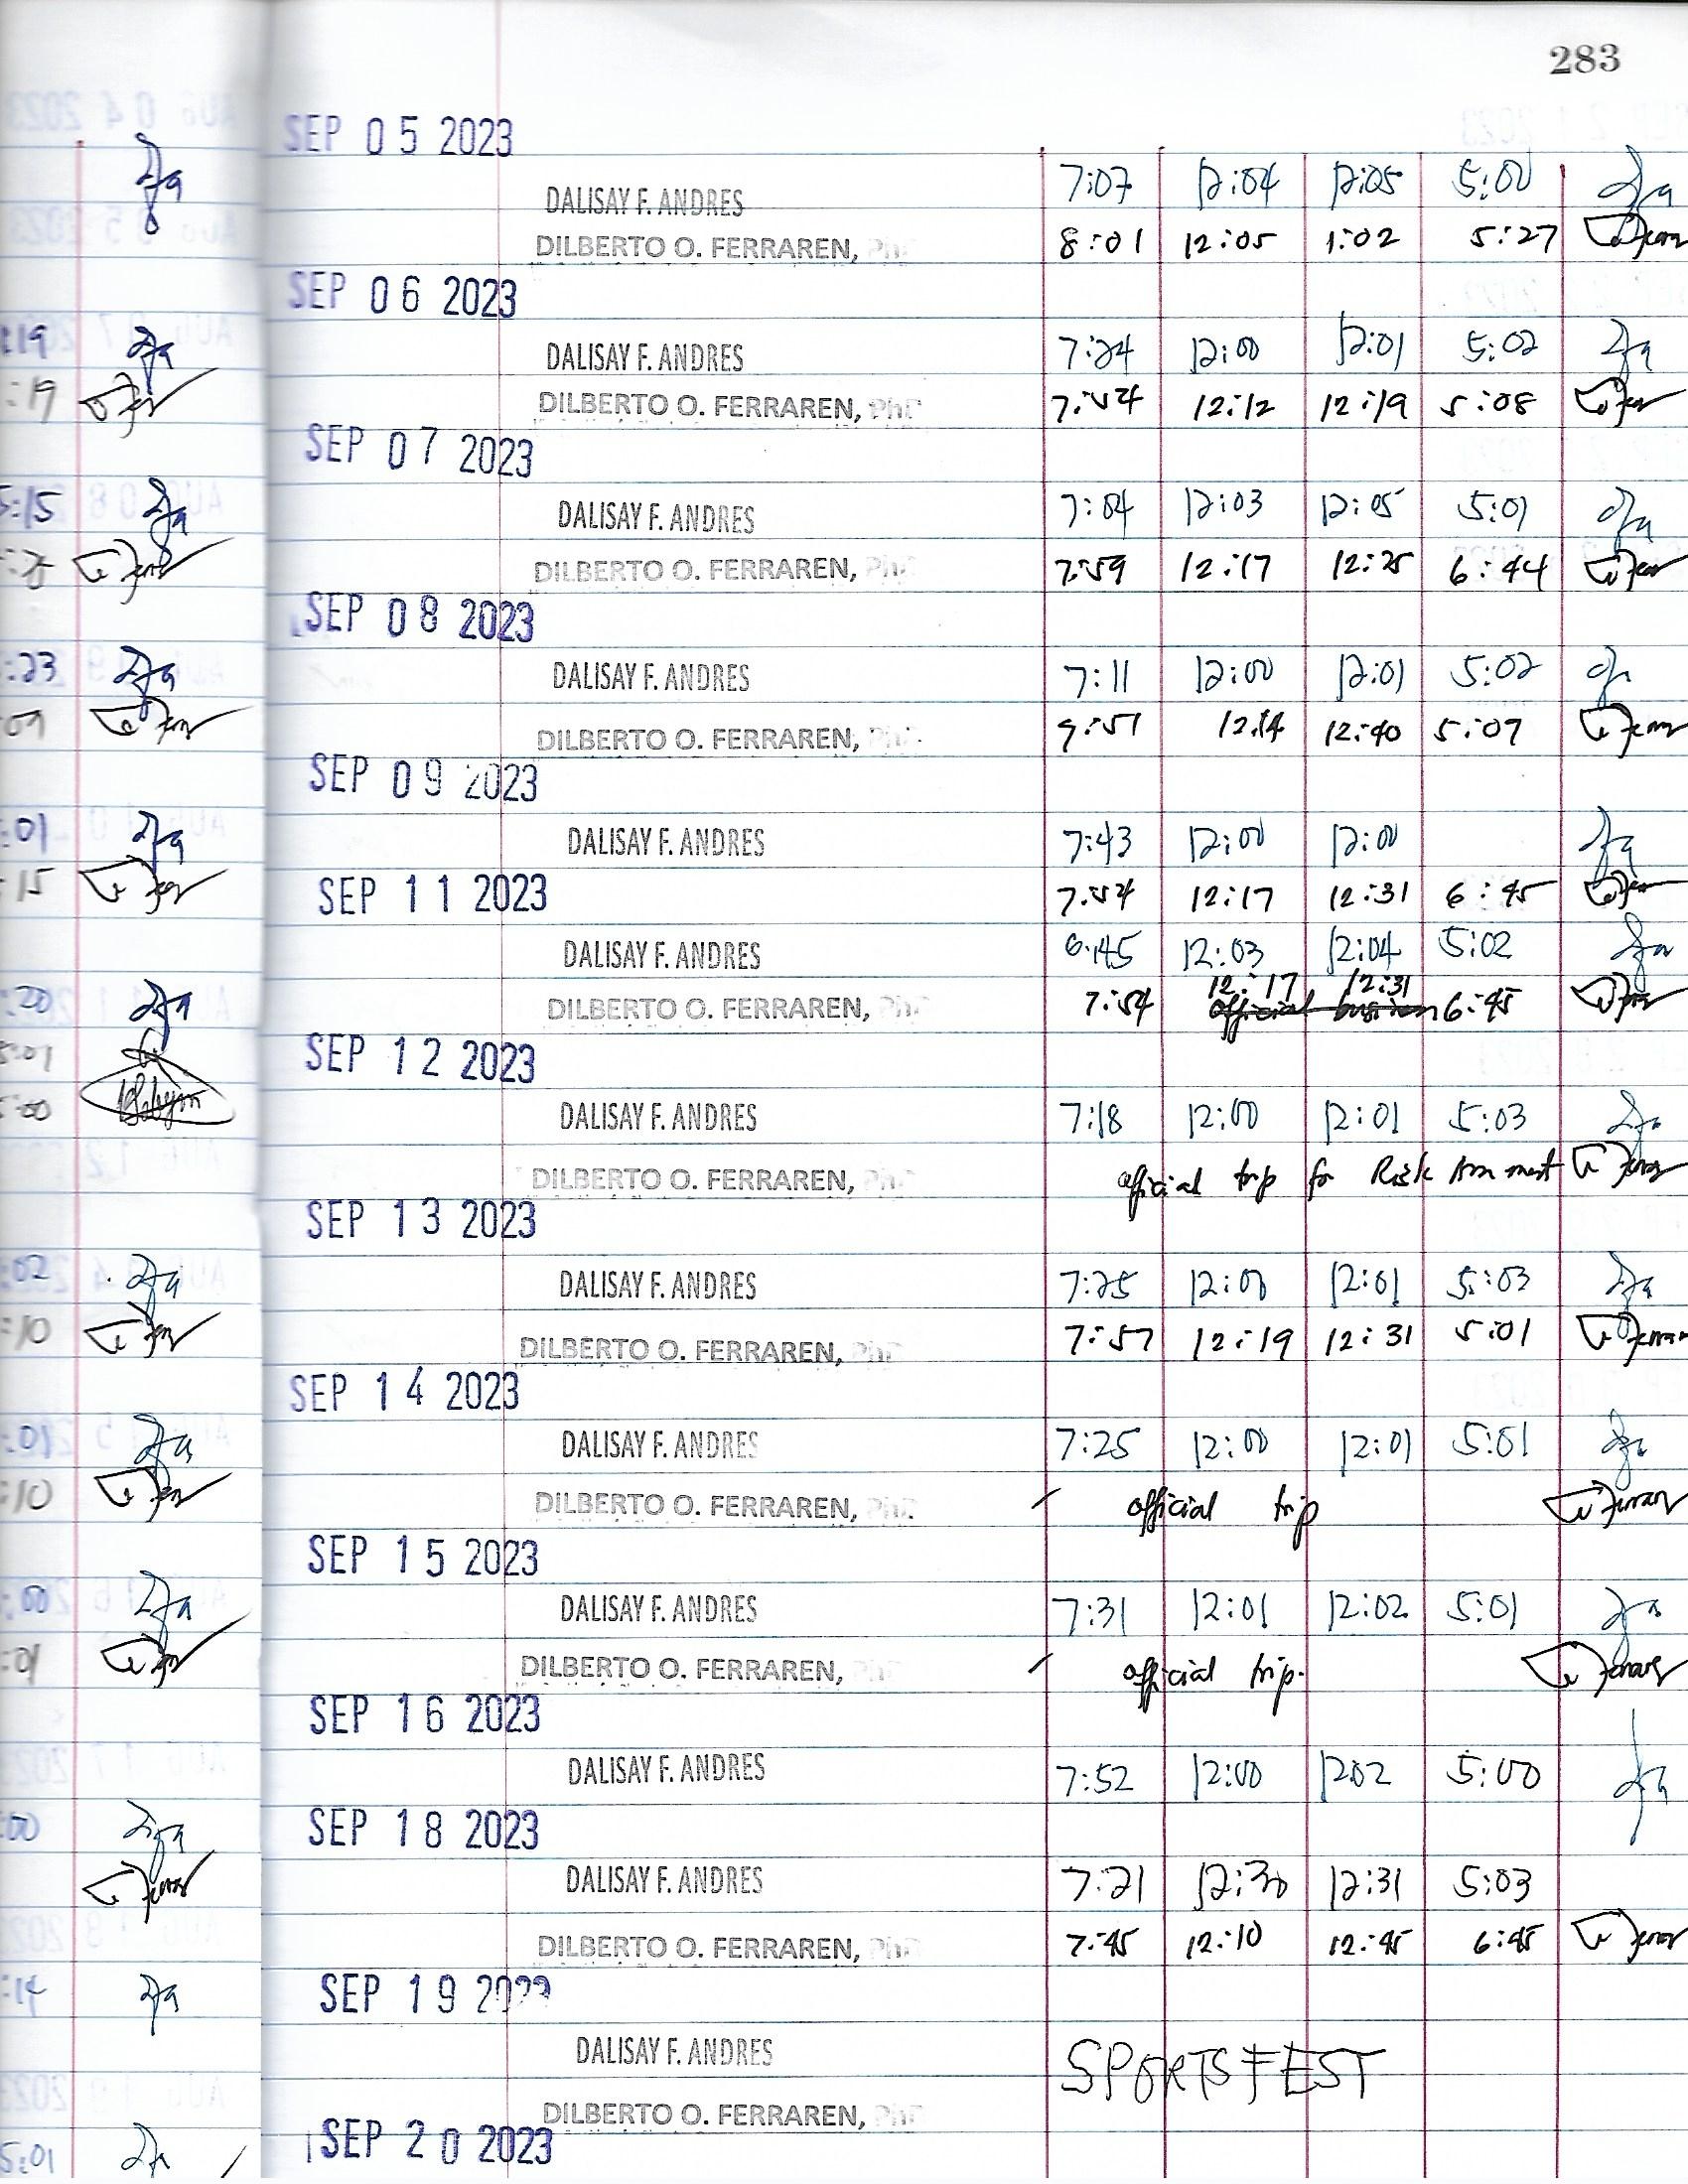 283
SEP 05 2023
DALISAY F. ANDRES 7:07 12:04 12:05 5:00
DILBERTO O. FERRAREN, PhD 8:01 12:05 1:02 5:27
SEP 06 2023
DALISAY F. ANDRES 7:24 12:00 12:01 5:02
DILBERTO O. FERRAREN, PhD 7:54 12:12 12:19 5:08
SEP 07 2023
DALISAY F. ANDRES 7:04 12:03 12:05 5:01
DILBERTO O. FERRAREN, PhD 7:59 12:17 12:25 6:44
SEP 08 2023
DALISAY F. ANDRES 7:11 12:00 12:01 5:02
DILBERTO O. FERRAREN, PhD 9:51 12:14 12:40 5:07
SEP 09 2023
DALISAY F. ANDRES 7:43 12:00 12:00
SEP 11 2023 7:54 12:17 12:31 6:45
DALISAY F. ANDRES 6:45 12:03 12:04 5:02
12:17 12:31
DILBERTO O. FERRAREN, PhD 7:54 official business 6:45
SEP 12 2023
DALISAY F. ANDRES 7:18 12:00 12:01 5:03
DILBERTO O. FERRAREN, PhD official trip for Risk
SEP 13 2023
DALISAY F. ANDRES 7:25 12:00 12:01 5:03
DILBERTO O. FERRAREN, PhD 7:57 12:19 12:31 5:01
SEP 14 2023
DALISAY F. ANDRES 7:25 12:00 12:01 5:01
DILBERTO O. FERRAREN, PhD official trip
SEP 15 2023
DALISAY F. ANDRES 7:31 12:01 12:02 5:01
DILBERTO O. FERRAREN, official trip.
SEP 16 2023
DALISAY F. ANDRES 7:52 12:00 1202 5:00
SEP 18 2023
DALISAY F. ANDRES 7:21 12:30 12:31 5:03
DILBERTO O. FERRAREN, PhD 7:45 12:10 12:45 6:45
SEP 19 2023
DALISAY F. ANDRES SPORTSFEST
DILBERTO O. FERRAREN, PhD
SEP 20 2023